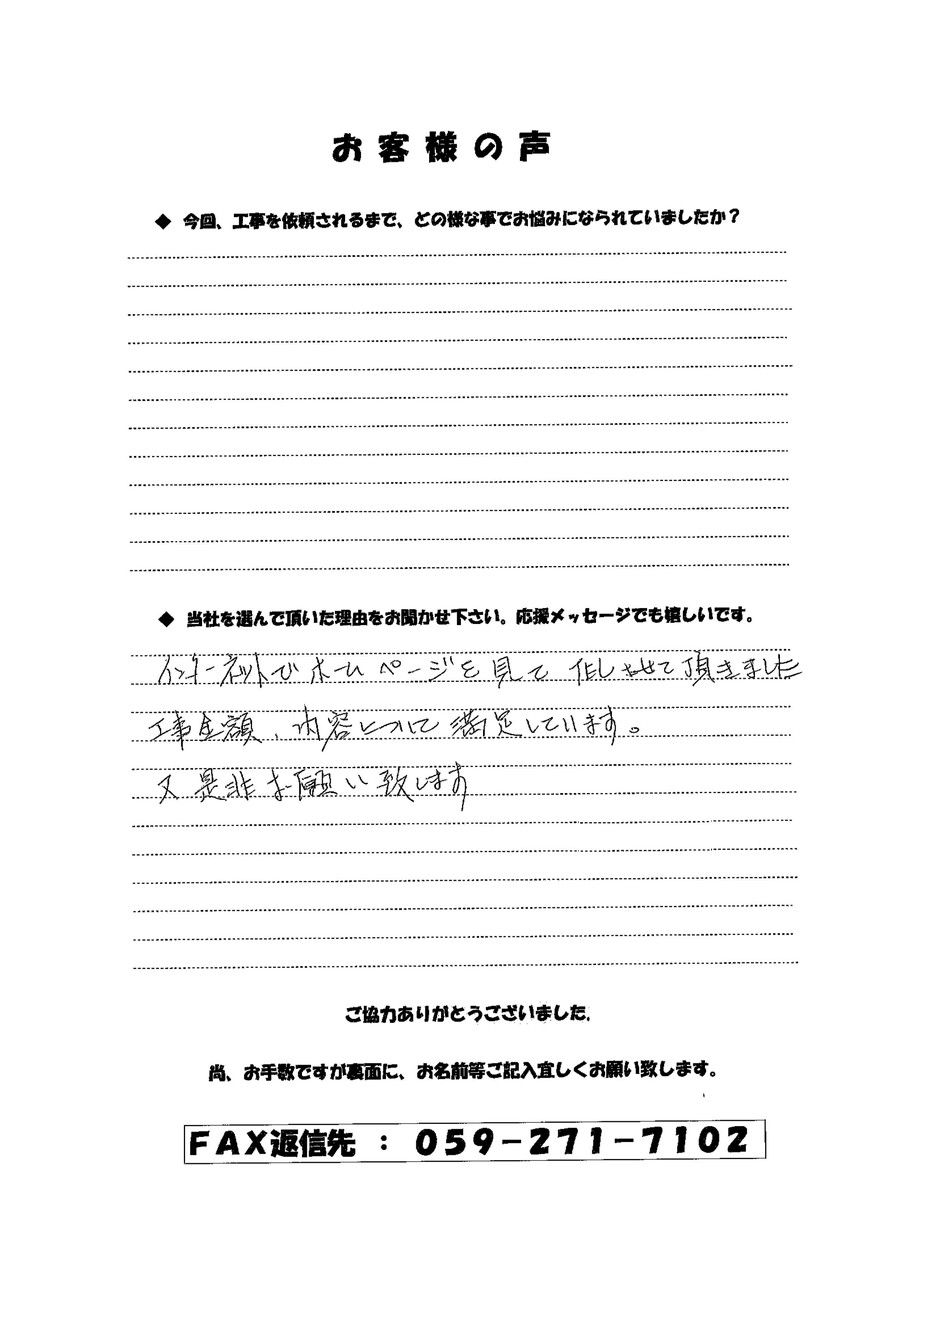 お客様の声
◆ 今回、工事を依頼されるまで、どの様な事でお悩みになられていましたか？
◆ 当社を選んで頂いた理由をお聞かせ下さい。応援メッセージでも嬉しいです。
インターネットでホームページを見て 任しせて頂きました
工事金額、内容について満足しています。
又是非お願い致します
ご協力ありがとうございました。
尚、お手数ですが裏面に、お名前等ご記入宜しくお願い致します。
FAX返信先 ： 059-271-7102